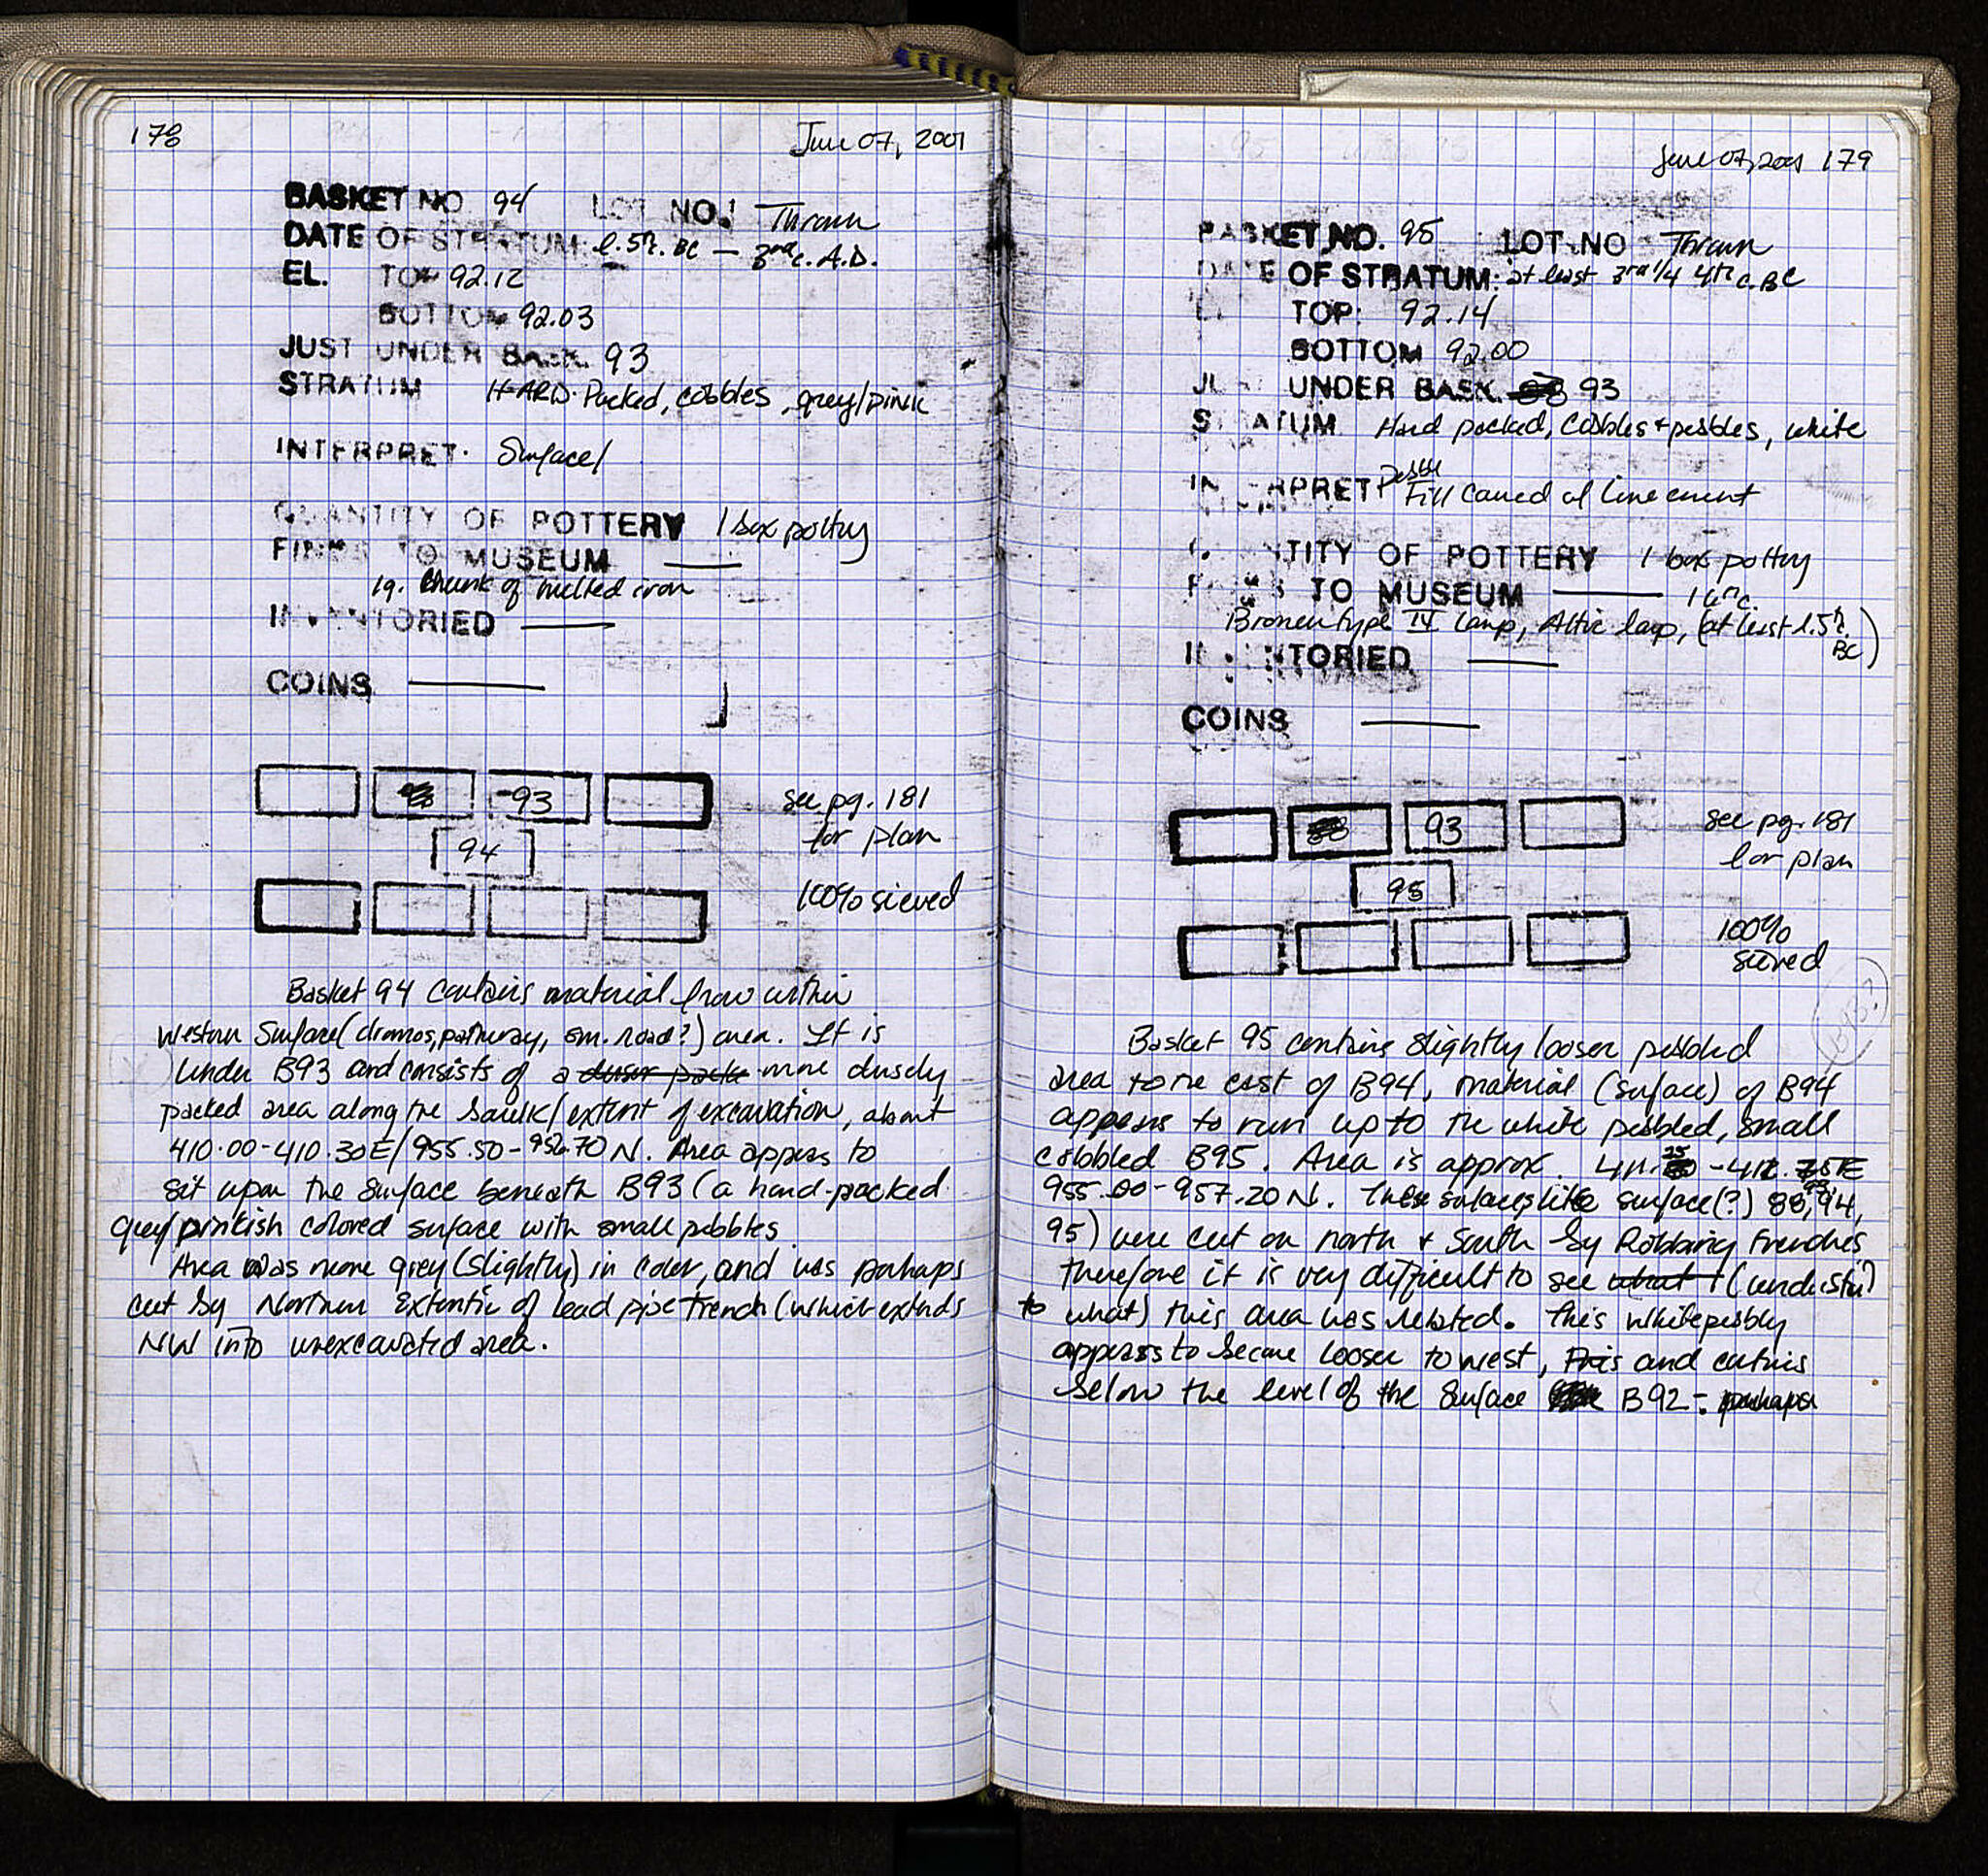 178
June 07, 2001
BASKET NO 94 LOT NO. Thrown
DATE OF STRATUM: l. 5th. BC – 3rd c. A.D.
EL. TOP 92.12
BOTTOM 92.03
JUST UNDER BASK. 93
STRATUM HARD Packed, cobbles, grey/pink
INTERPRET. Surface/
QUANTITY OF POTTERY 1 box pottery
FINDS TO MUSEUM
19. Chunk of melted iron
INVENTORIED
COINS
93
94
see pg. 181
for plan
100% sieved
Basket 94 contains material from within
Western Surface (dromos, pathway, sm. road?) area. It is
under B93 and consists of a denser packe more densely
packed area along the baulk/extent of excavation, about
410.00-410.30E/955.50-956.70N. Area appears to
sit upon the surface beneath B93 (a hard-packed
grey/pinkish colored surface with small pebbles
Area was more grey (slightly) in color, and was perhaps
cut by Northern of lead pipe trench (which extends
NW into unexcavated area.
June 07, 2001 179
BASKET NO. 95 LOT NO Thrown
DATE OF STRATUM: at least 3rd 1/4 4th c. BC
TOP: 92.14
BOTTOM 92.00
JUST UNDER BASK. 93
STRATUM Hard packed, cobbles + pebbles, white
INTERPRET Pebble Fill
QUANTITY OF POTTERY 1 box pottery
FINDS TO MUSEUM
Broneer type IV lamp, Attic lamp, (at least l. 5th.
BC)
INVENTORIED
COINS
93
95
see pg. 181
for plan
100%
sieved
Basket 95 contains slightly looser pebbled
area to the east of B94, material (surface) of B94
appears to run up to the white pebbled, small
cobbled B95. Area is approx.
955.00-957.20N. These surface(?) 88, 93, 94,
95) were cut on north + South by Robbing trenches
therefore it is very difficult to see what (understand
to what) this area was related. This white pebbly
appears to become looser to west, This and
below the level of the surface B92 - perhaps